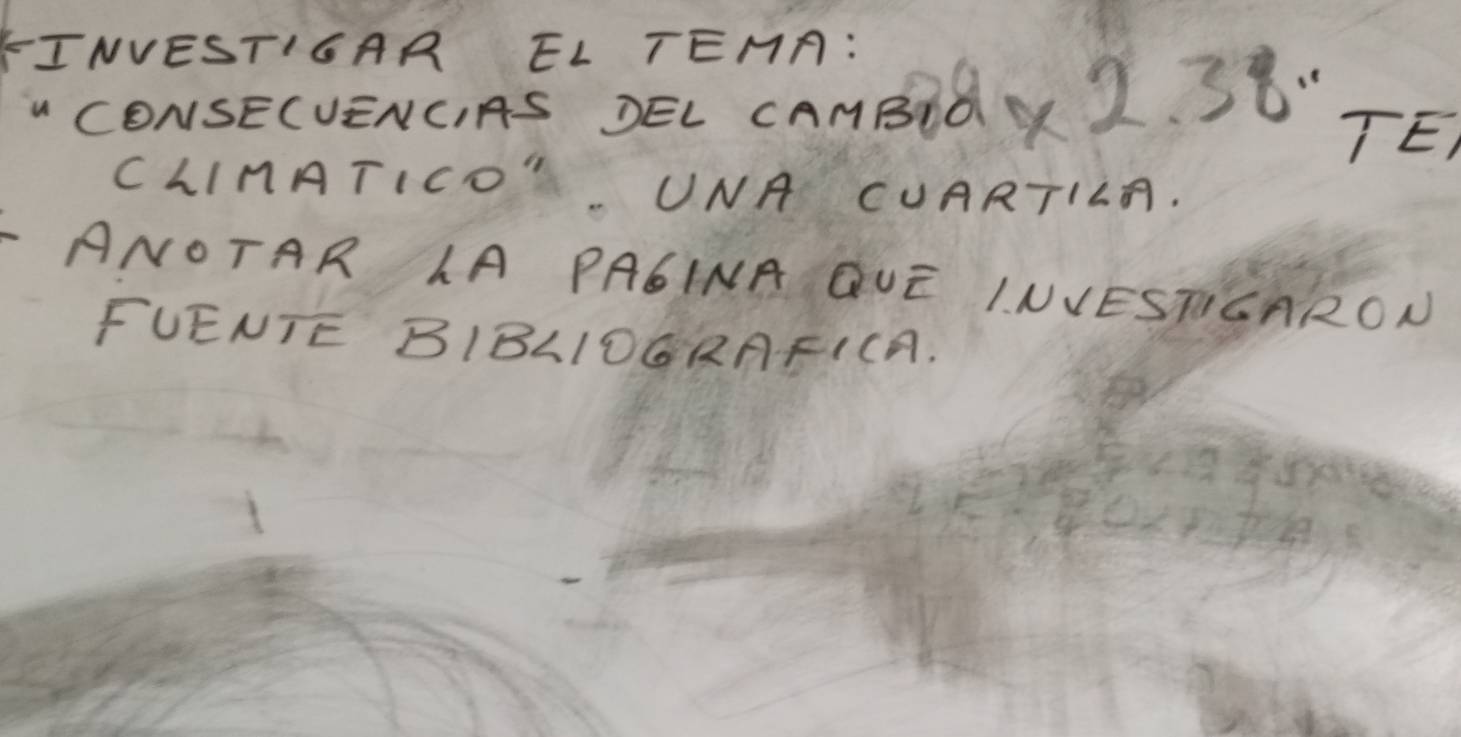 INVESTIGAR EL TEMA:
"CONSECUENCIAS DEL CAMBIO
x 2.38"
CLIMATICO". UNA CUARTILA.
- ANOTAR LA PAGINA QUE INVESTIGARON
FUENTE BIBLIOGRAFICA.